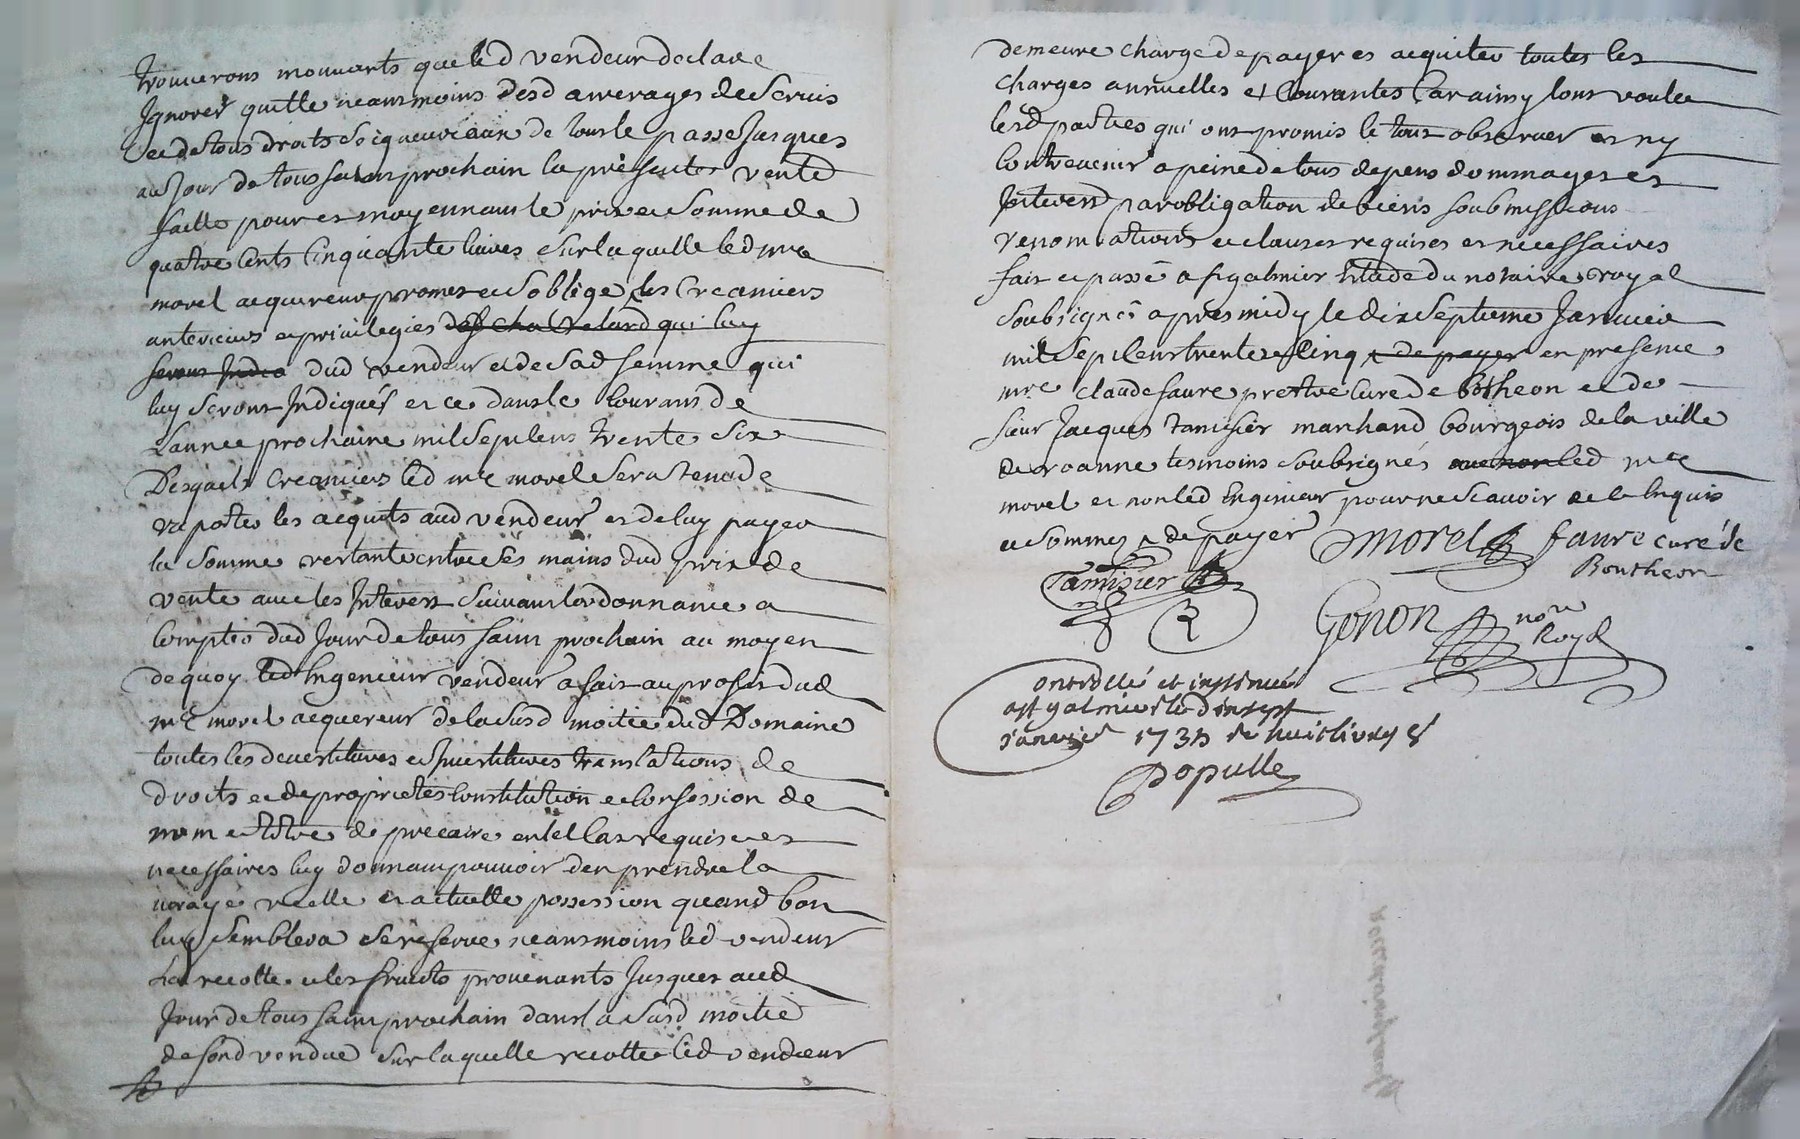 trouverons mouvants que led vendeur declare
Ignorer quitte neansmoins desd arrerages de servis
et de tous droits seigneuriaux de tout le passe Jusques
au Jour de toussaint prochain la presente vente
faitte pour et moyennant le prix et somme de
quatre cents Cinquante livres sur laquelle led mre
morel acquereur promet et s oblige les Creanciers
anterieurs et privilegies
dud vendeur et de sad femme qui
luy seront Indiqués et ce dans le Courant de
L annee prochaine mil sept cens trente six
Desquels Creanciers led mre morel sera tenu de
raporter les acquits aud vendeur et de luy payer
la somme restante entre ses mains dud prix de
vente avec les Interest suivant lordonnance a
Compter dud Jour de tous saint prochain au moyen
de quoy led Ingenieur vendeur a fait au profit dud
mre morel acquereur de la susd moitie dud Domaine
toutes les devestitures et Investitures translations de
droits et de proprietes Constitution et Confession de
nom et titre de precaire en tel Cas requises et
necessaires luy donnant pouvoir den prendre la
vraye reelle et actuelle possession quand bon
luy semblera se reserve neansmoins led vendeur
La recolte et les fruits provenants Jusques aud
Jour de tous saint prochain dans la susd moitié
de fond vendue sur laquelle recolte led vendeur
demeure charge de payer et acquiter toutes les
charges annuelles et Courantes Car ainsy lont voulu
lesd parties qui ont promis le tout observer et ny
Contrevenir a peine de tous depens dommages et
Interest par obligation de biens soubmissions
renonciations et clauses requises et necessaires
fait et passé a st galmier Estude du notaire royal
soubsigné apres midy le dix septieme Janvier
mil sept cens trente et Cinq + de payer en presence
mre claude faure prestre Curé de botheon et de
sieur Jacques tamisier marchand bourgeois de la ville
de roanne tesmoins soubsignés led mre
morel et non led Ingenieur pour ne scavoir de ce Enquis
et sommez + de payer Morel faure curé de
Bontheon
Tamisier
Gonon nore
Royal
Controllé et insinué
a st galmier le dixsept
Janvier 1735 Re huit livres 8 s
Populle